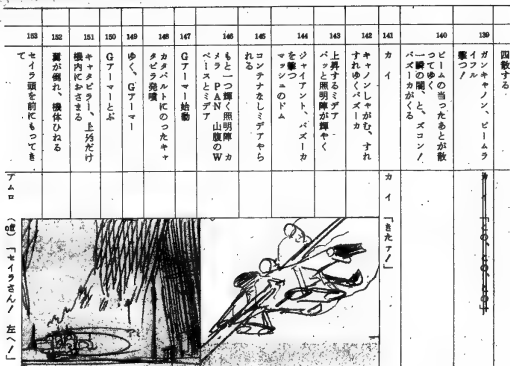 四散する。
139
ガンキャノン、ビームラ
イフル
撃つ！
カイ「このっこのっこのっ」
140
ビームの当ったあとが散
ってゆく
一瞬の間、と、ズコン！
バズーカがくる
141
カイ
カイ「きたァ！」
142
キャノンしゃがむ、すれ
すれゆくバズーカ
143
上昇するミデア
パッと照明弾が輝やく
144
ジャイアント、バズーカ
を撃つ
マッシュのドム
145
コンテナなしミデアやら
れる
146
もと一つ輝く照明弾 カ
メラ PAN 山腹のW
ベースとミデア
147
Gアーマー始動
148
カタパルトにのったキャ
タピラ発噴
149
ゆく、Gアーマー
150
Gアーマーとぶ
151
キャタピラー、上½だけ
機内におさまる
152
翼が倒れ、機体ひねる
153
セイラ頭を前にもってき
て
アムロ（OFF）「セイラさん！左へ！」